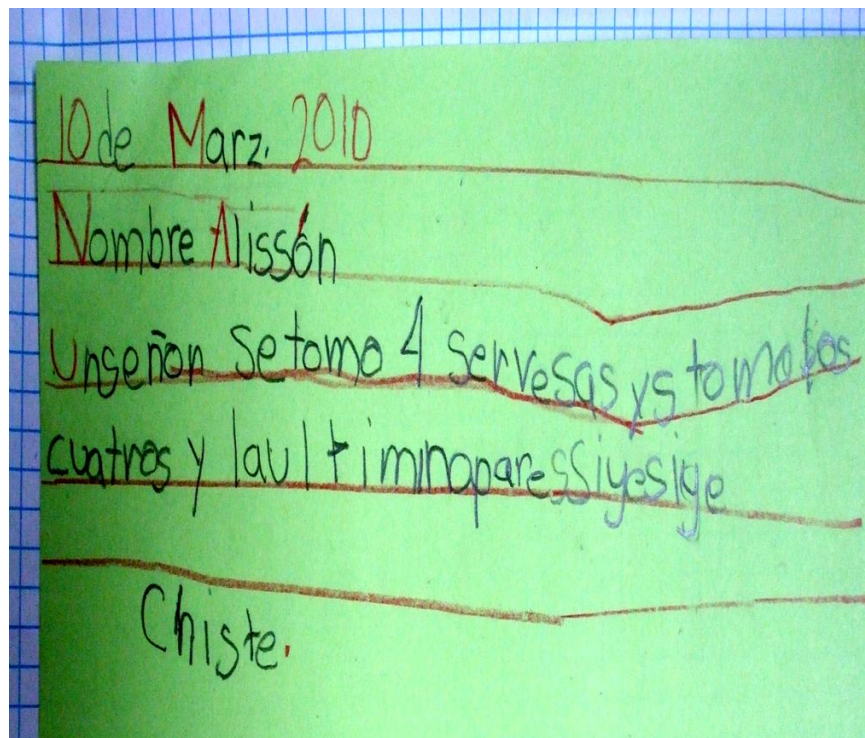 10 de Marz. 2010
Nombre Alissón
Unseñor setomo 4 servesas ys tomo los
cuatros y laultiminaparessiyesiye
Chiste.